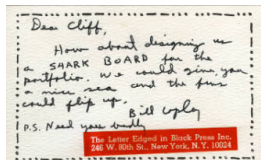 Dear Cliff,
How about designing us
a SHARK BOARD for the
portfolio. We could give you
a nice sea and the fins
could flip up.
Bill Copley
P.S. Need you badly
The Letter Edged in Black Press Inc.
246 W. 80th St., New York, N.Y. 10024